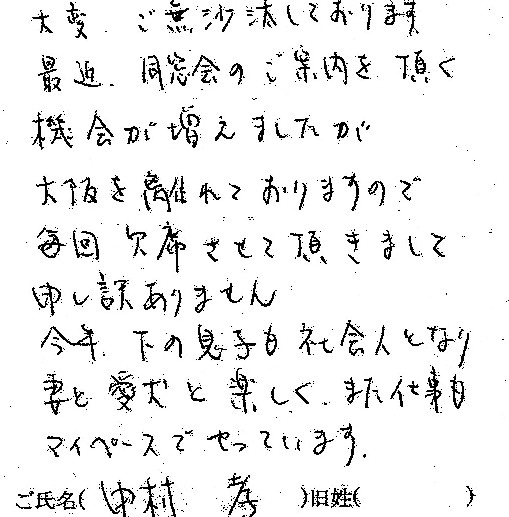 大変、ご無沙汰しております
最近、同窓会のご案内を頂く
機会が増えましたが
大阪を離れておりますので
毎回欠席させて頂きまして
申し訳ありません
今年、下の息子も社会人となり
妻と愛犬と楽しく、また仕事も
マイペースでやっています。
ご氏名(中村 孝)旧姓( )